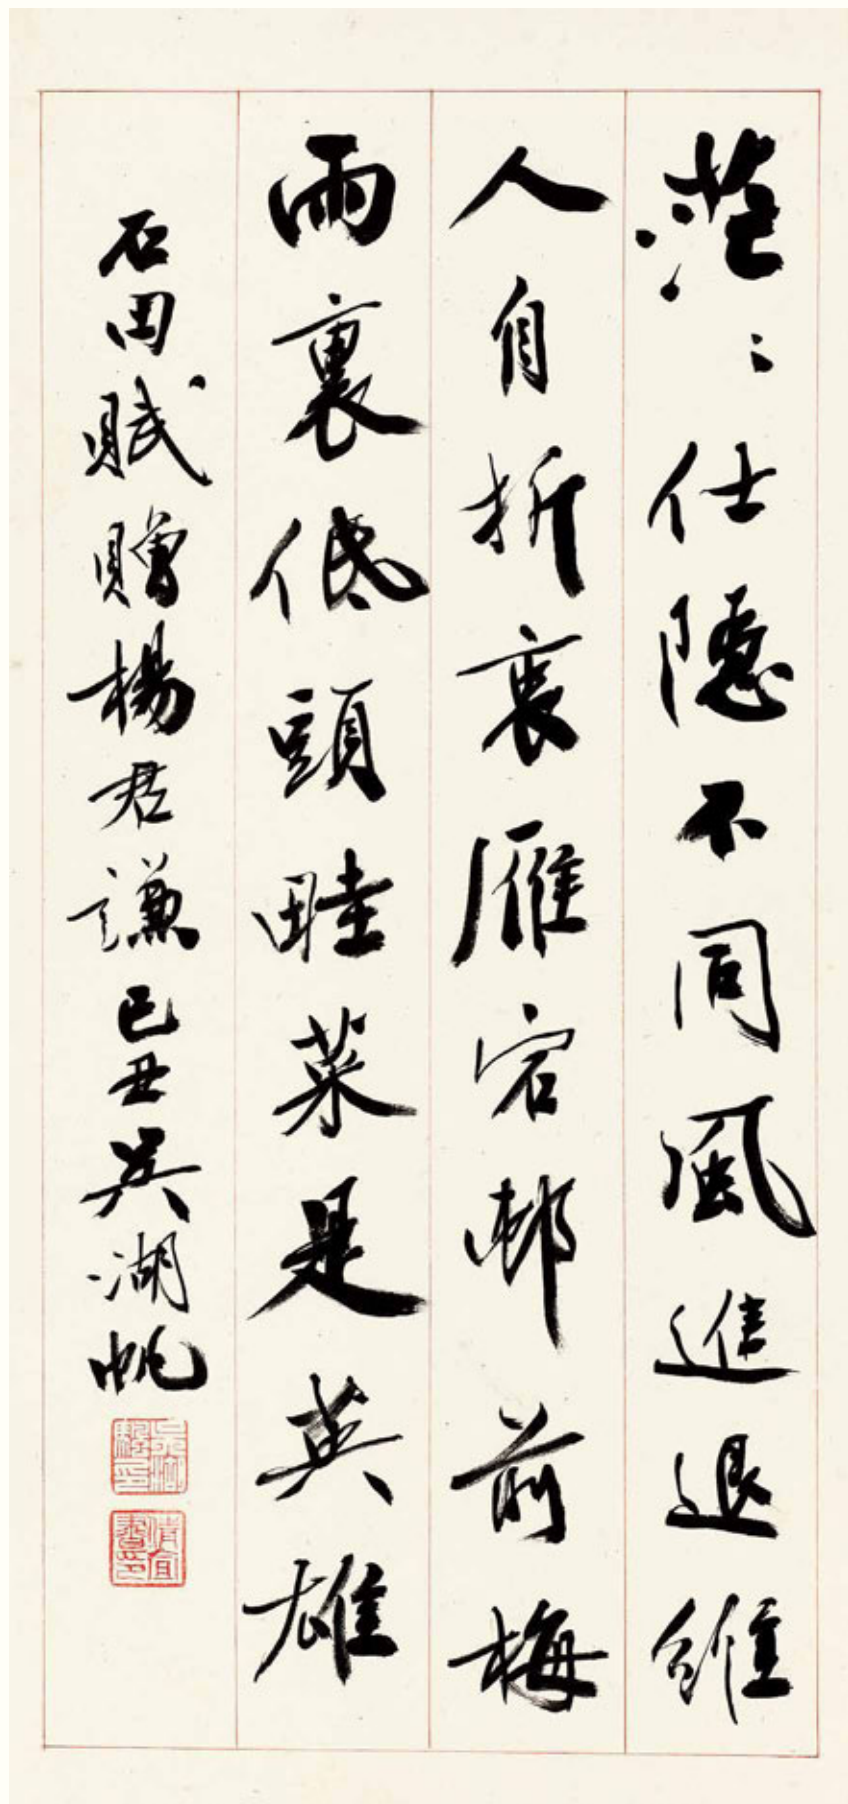 茫〻仕隱不同風進退維
人自折衷雁宕邨前梅
雨裏低頭畦菜是英雄
石田賦贈楊君謙己丑吴湖帆
吳湖颿印